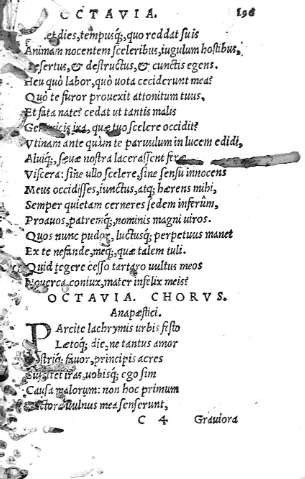 OCTAVIA. 196
et dies, tempusq́;, quo reddat suis
Animam nocentem sceleribus, iugulum hostibus,
Desertus, & destructus, & cunctis egens.
Heu quò labor, quò uota ceciderunt mea?
Quò te furor prouexit attonitum tuus,
Et fata nate? cedat ut tantis malis
Genitricis ira, quæ tuo scelere occidit?
Vtinam ante quàm te paruulum in lucem edidi,
Aluiq́;, sæuæ nostra lacerassent feræ
Viscera: sine ullo scelere, sine sensu innocens
Meus occidisses, iunctus, atq; hærens mihi,
Semper quietam cerneres sedem inferûm,
Proauos, patremq́;, nominis magni uiros.
Quos nunc pudor, luctusq́; perpetuus manet
Ex te nefande, meq́;, quæ talem tuli.
Quid tegere cesso tartaro uultus meos
Nouerca, coniux, mater infelix meis?
OCTAVIA. CHORVS.
Anapæstici.
Parcite lachrymis urbis festo
Lætoq́; die, ne tantus amor
Nostriq́; fauor, principis acres
Suscitet iras, uobisq́; ego sim
Causa malorum: non hoc primum
Pectora uulnus mea senserunt,
C 4 Grauiora